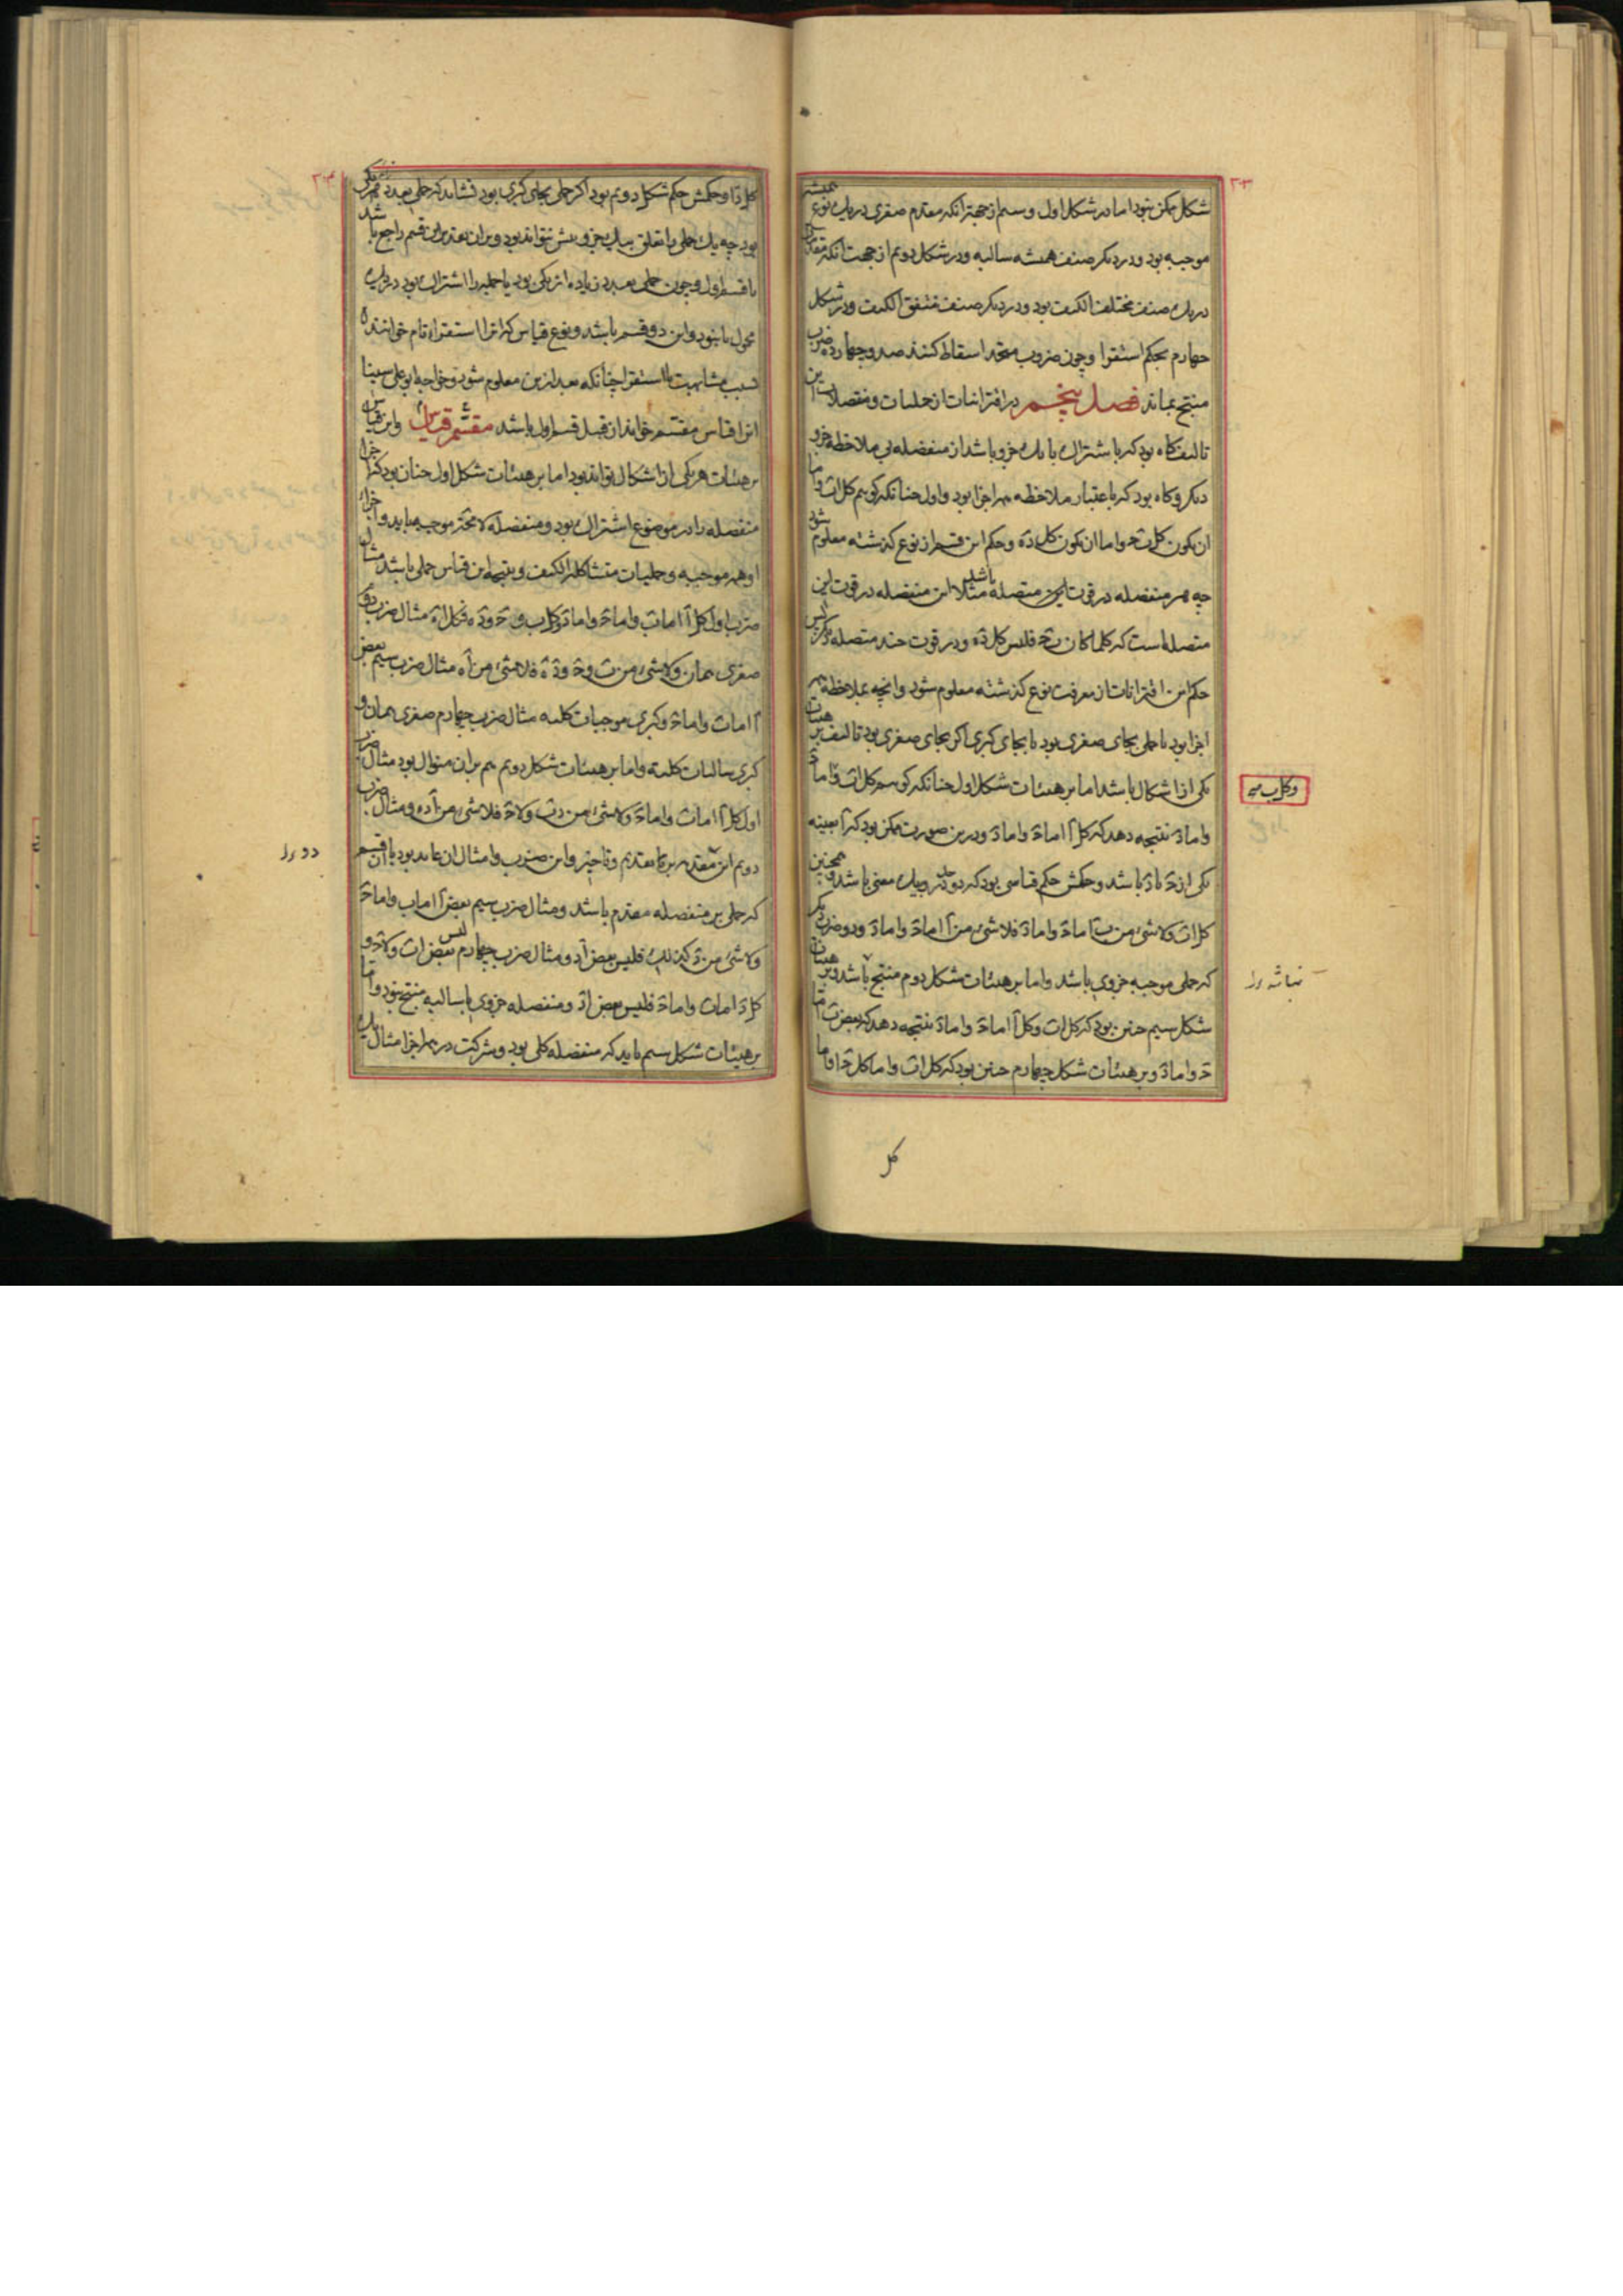 ۲۰۳
شکل ممکن نبود اما در شکل اول و سیم از جهت آنکه مقدم صغری در یک نوع همیشه
موجبه بود و در دیکر صنف همیشه سالبه و در شکل دویم از جهت آنکه
در یک صنف مختلف الکیف بود و در دیکر صنف متفق الکیف و در شکل
چهارم بحکم استقرا و چون ضروب متحد اسقاط کنند صد و چهارده ضرب
منتج بماند فصل پنجم در اقترانیات از حملیات و منفصلات این
تالیف کاه بود که باشتراک با یک جزو باشد از منفصله بی ملاحظه جزو
دیکر و کاه بود که باعتبار ملاحظه همه اجزا بود و اول چنانکه کوییم کل ا ب واما
ان یکون کل ب ج واما ان یکون کل د ه وحکم این قسم از نوع کذشته معلوم شود
چه هر منفصله در قوت متصله باشد مثلا این منفصله در قوت این
متصله است که کلما کان ب ج فلیس کل د ه و در قوت چند متصله دیکر پس
حکم این اقترانات از معرفت نوع کذشته معلوم شود وانچه بملاحظه همه
اجزا بود یا حملی بجای صغری بود یا بجای کبری اکر بجای صغری بود تالیف بر هیئات
یکی از اشکال باشد اما بر هیئات شکل اول چنانکه کوییم کل ا ب واما ج
واما د نتیجه دهد که کل ا اما ج واما د و درین صورت ممکن بود که ا بعینه
یکی از ج یا د باشد وحکمش حکم قیاسی بود که دو حد در ویک معنی باشد و همچنین
کل ا ب ولا شیء من ب اما ج واما د فلا شیء من ا اما ج واما د و دو ضرب دیکر
که حملی موجبه جزوی باشد واما بر هیئات شکل دوم منتج باشد و بر هیئات
شکل سیم چنین بود که کل ا ب وکل ا اما ج واما د نتیجه دهد که بعض ب اما
ج واما د و بر هیئات شکل چهارم چنین بود که کل ا ب واما کل ج ا واما
کل
وکل ب
نباشد
کل د ا وحکمش حکم شکل دویم بود اکر حملی بجای کبری بود نشاید که حملی بعدد یکی
بود چه یک حملی را تعلق بیک جزو بیش نتواند بود و بران تقدیر این قسم راجع باشد
با قسم اول و چون حملی بعدد زیاده از یکی بود یا حملیه را اشتراک بود در یک
محمول یا نبود واین دو قسم باشد و نوع قیاس که انرا استقراء تام خوانند
بسبب مشابهت با استقرا چنانکه بعد ازین معلوم شود وخواجه ابو علی سینا
انرا قیاس مقسم خواند از قبیل قسم اول باشد قیاس مقسم واین قیاس
بر هیئات هر یکی از اشکال تواند بود اما بر هیئات شکل اول چنان بود که اجزا
منفصله را در موضوع اشتراک بود ومنفصله لا محاله موجبه باید واجزاء
او همه موجبه وحملیات متشاکل الکیف ونتیجه این قیاس حملی باشد مثال
ضرب اول کل ا اما ب واما ج واما د وکل ب و ج و د ه فکل ا ه مثال ضرب دوم
صغری همان ولا شیء من ب و ج و د ه فلا شیء من ا ه مثال ضرب سیم بعض
ا اما ب واما ج وکبری موجبات کلیه مثال ضرب چهارم صغری همان و
کبری سالبات کلیه واما بر هیئات شکل دویم هم بران منوال بود مثال ضرب
اول کل ا اما ب واما ج ولا شیء من د ب ولا ج فلا شیء من ا د ومثال ضرب
دویم این مقدمه بر بتقدیم وتاخیر واین ضروب وامثال ان عاید بود با ان قسم
که حملی بر منفصله مقدم باشد ومثال ضرب سیم بعض ا اما ب واما ج
ولا شیء من د کذلک فلیس بعض ا د ومثال ضرب چهارم لیس بعض ا ب ولا ج و
کل د اما ب واما ج فلیس بعض ا د ومنفصله جزوی یا سالبه منتج نبود واما
بر هیئات شکل سیم باید که منفصله کلی بود وشرکت در همه اجزا مثال